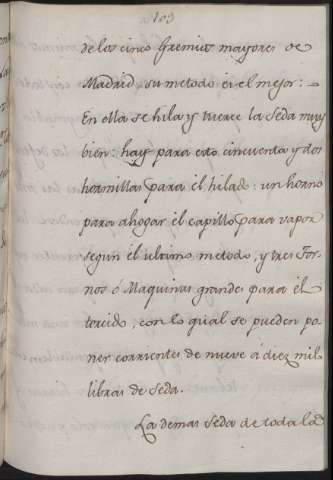 103
de los cinco Gremios mayores de
Madrid, su metodo es el mejor:
En ella se hila, y tuerce la seda muy
bien: hay para esto cincuenta y dos
hornillas para el hilado: un horno
para ahogar el capillo para vapor
segun el ultimo metodo, y tres Tor-
nos ó Maquinas grandes para el
torcido, con lo qual se pueden po-
ner corrientes de nueve á diez mil
libras de seda.
La demas seda de toda la